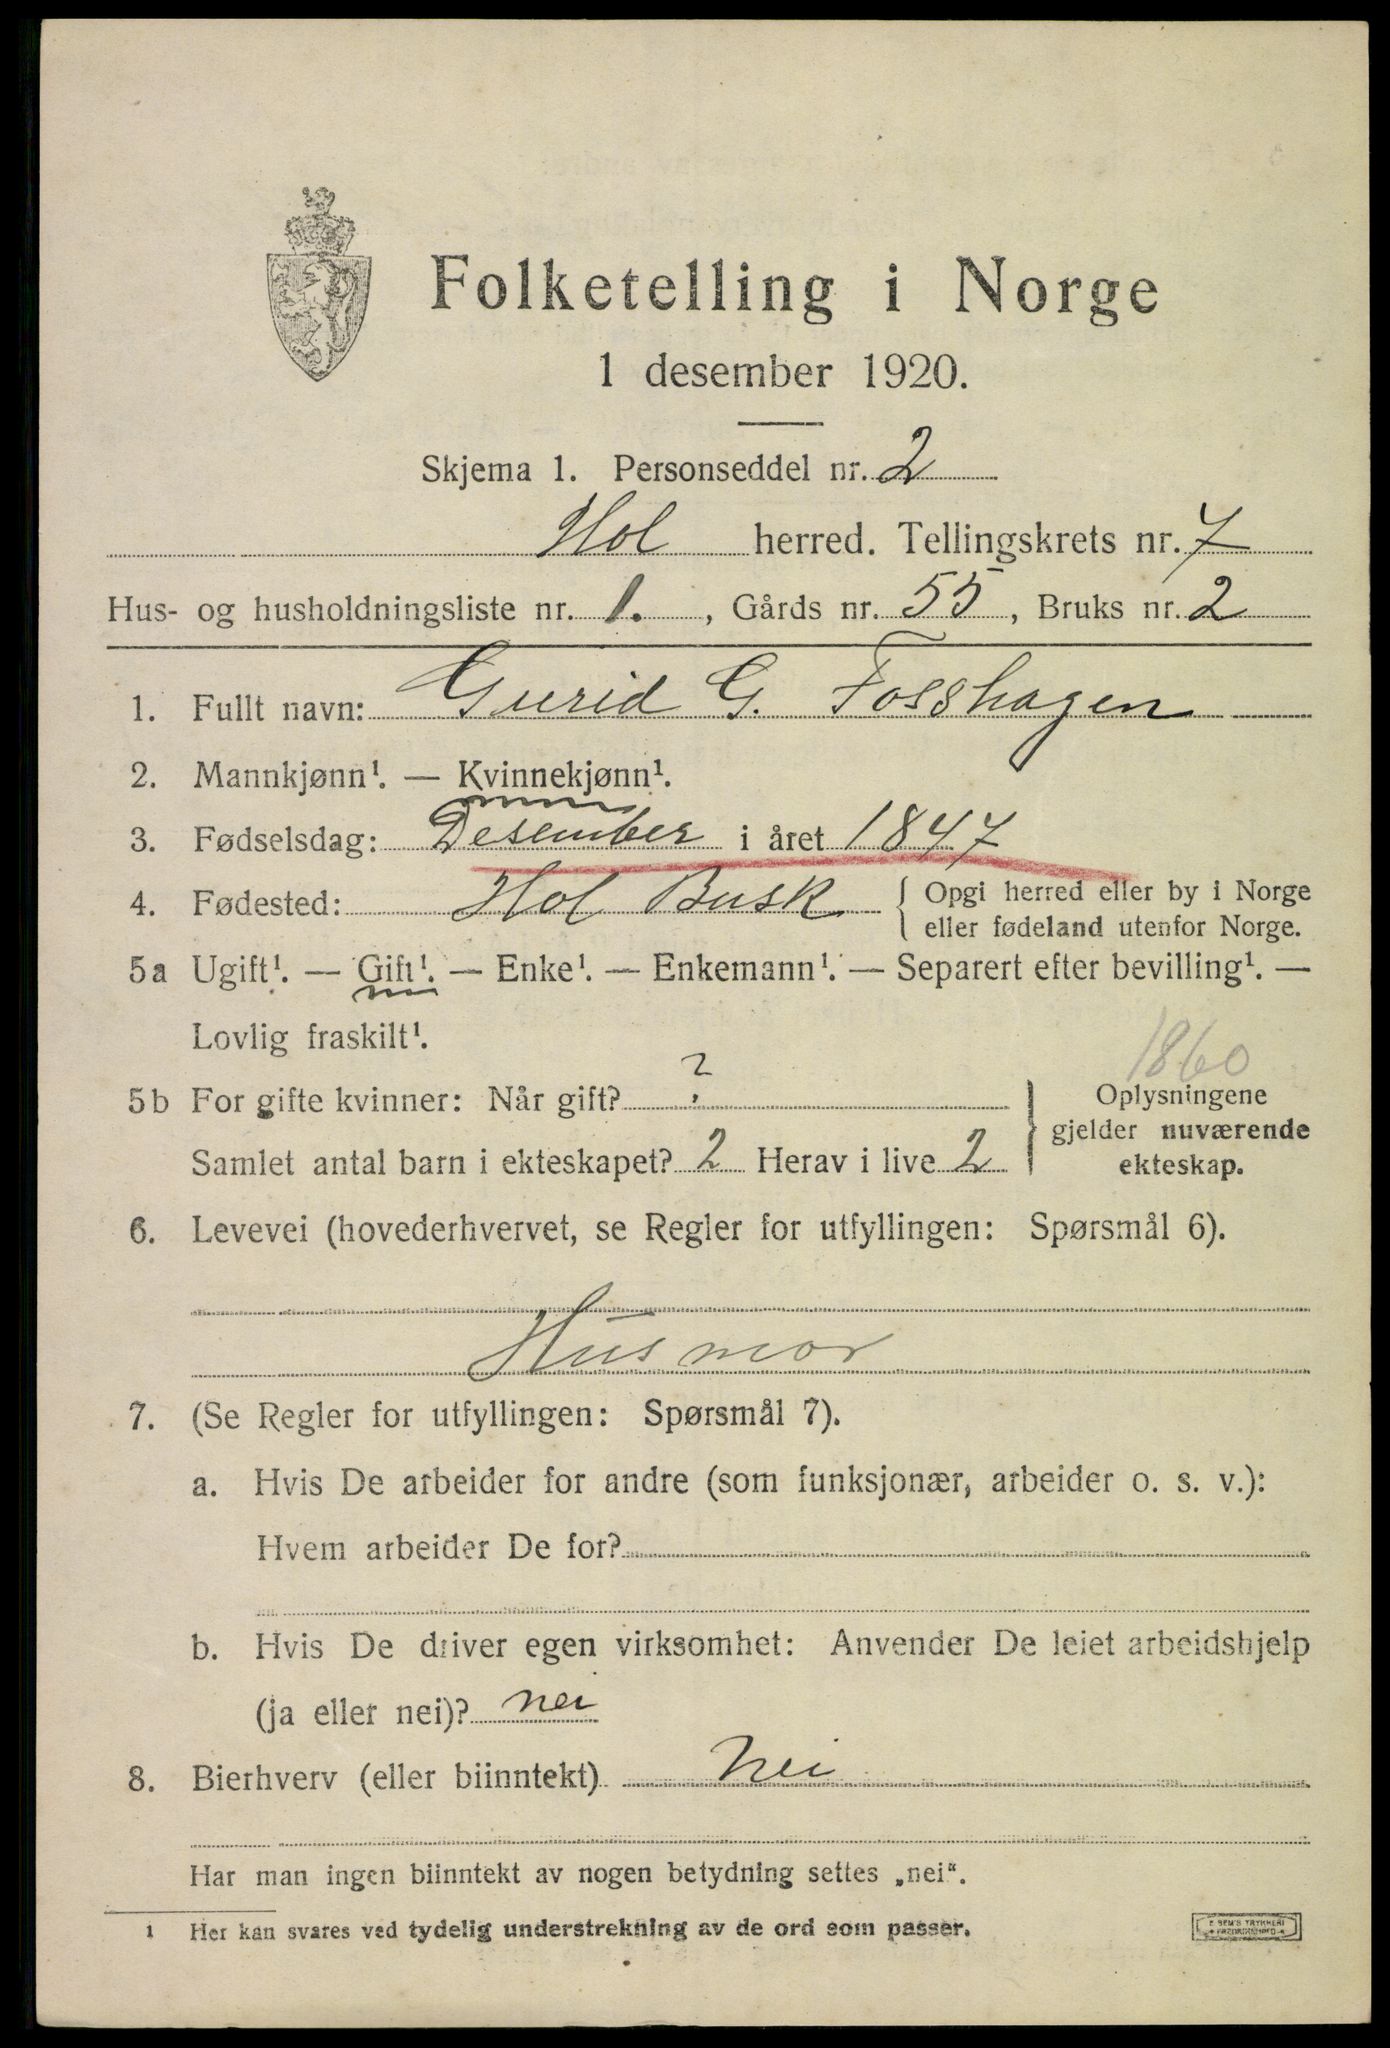 Folketelling i Norge
1 desember 1920.
Skjema 1. Personseddel nr. 2
Hol herred. Tellingskrets nr. 7
Hus- og husholdningsliste nr. 1. , Gårds nr. 55, Bruks nr. 2
1. Fullt navn: Gurid G. Fosshagen
2. Mannkjønn¹. — Kvinnekjønn¹.
3. Fødselsdag: Desember i året 1847
4. Fødested: Hol Busk { Opgi herred eller by i Norge
eller fødeland utenfor Norge.
5a Ugift¹. — Gift¹. — Enke¹. — Enkemann¹. — Separert efter bevilling¹. —
Lovlig fraskilt¹.
1860
5b For gifte kvinner: Når gift? ? Oplysningene
gjelder nuværende
Samlet antal barn i ekteskapet? 2 Herav i live 2 ekteskap.
6. Levevei (hovederhvervet, se Regler for utfyllingen: Spørsmål 6).
Husmor
7. (Se Regler for utfyllingen: Spørsmål 7).
a. Hvis De arbeider for andre (som funksjonær, arbeider o. s. v.):
Hvem arbeider De for?
b. Hvis De driver egen virksomhet: Anvender De leiet arbeidshjelp
(ja eller nei)? nei
8. Bierhverv (eller biinntekt) Nei
Har man ingen biinntekt av nogen betydning settes „nei“.
1 Her kan svares ved tydelig understrekning av de ord som passer.